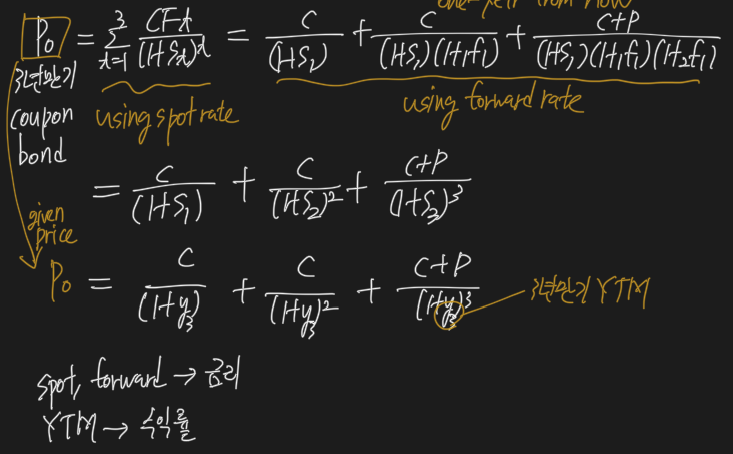 one-year from now
P₀ = Σ_{t=1}^{3} CFt/(1+St)^t = C/(1+S₁) + C/(1+S₁)(1+₁f₁) + C+P/(1+S₁)(1+₁f₁)(1+₂f₁)
3년만기 coupon bond
using spot rate
using forward rate
= C/(1+S₁) + C/(1+S₂)² + C+P/(1+S₃)³
given price
P₀ = C/(1+y₃) + C/(1+y₃)² + C+P/(1+y₃)³
3년만기 YTM
spot, forward → 금리
YTM → 수익률